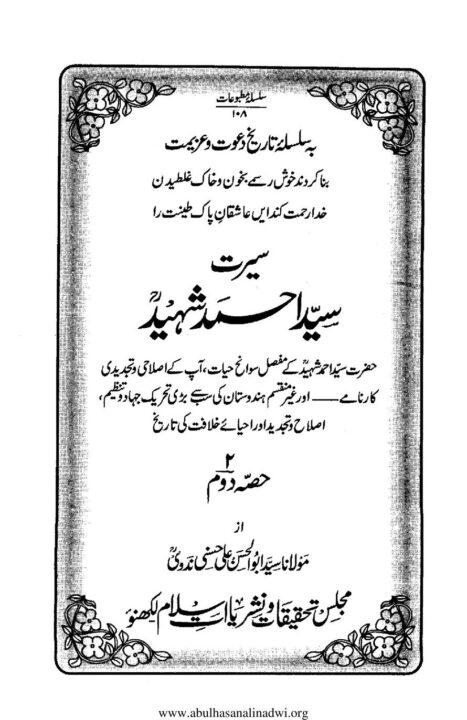 سلسلۂ مطبوعات
۱۰۸
بہ سلسلۂ تاریخ دعوت و عزیمت
بنا کردند خوش رسمے بخون و خاک غلطیدن
خدا رحمت کند ایں عاشقانِ پاک طینت را
سیرت
سیّد احمد شہیدؒ
حضرت سیّد احمد شہیدؒ کے مفصل سوانح حیات، آپ کے اصلاحی و تجدیدی
کارنامے —— اور غیر منقسم ہندوستان کی سب سے بڑی تحریک جہاد و تنظیم،
اصلاح و تجدید اور احیائے خلافت کی تاریخ
۲
حصہ دوم
از
مولانا سیّد ابو الحسن علی حسنی ندویؒ
مجلس تحقیقات و نشریات اسلام لکھنؤ
www.abulhasanalinadwi.org